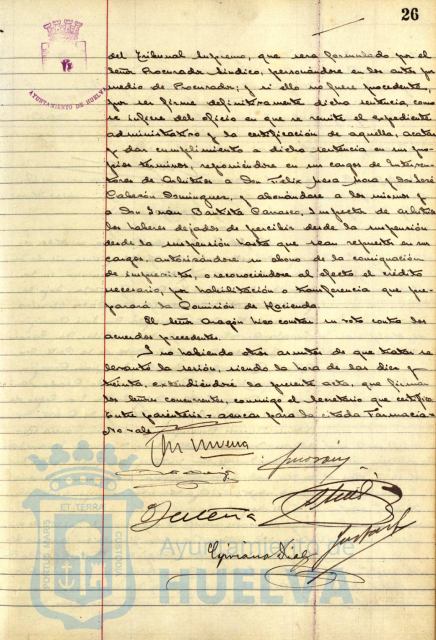 26
AYUNTAMIENTO DE HUELVA
del Tribunal Supremo, que sera formulado por el
Señor Procurador Sindico, personandose en los autos por
medio de Procurador; y si ello no fuere procedente,
por ser firme definitivamente dicha sentencia, como
se infiere del oficio en que se remite el expediente
administrativo y la certificación de aquella, acatar
y dar cumplimiento a dicha sentencia en sus pro-
pios terminos, reponiendose en sus cargos de Interven-
tores de Arbitrios a Don Felix y Don José
Calderón Dominguez, y abonandose a los mismos y
a Don Juan Bautista Carrasco, Inspector de Arbitrios
los haberes dejados de percibir desde la suspensión
desde la suspensión hasta que sean repuestos en sus
cargos, autorizandose su abono de la consignación
de imprevistos, o reconociendose al efecto el crédito
necesario, por habilitación o transferencia que pre-
parará la Comisión de Hacienda.
El Señor Aragón hizo constar su voto contra los
acuerdos precedentes.
Y no habiendo otros asuntos de que tratar se
levanto la sesión, siendo la hora de las diez y
treinta, extendiendose la presente acta, que firman
los señores concurrentes, conmigo el Secretario que certifico.
Entre parentesis = desde la suspensión
No vale
Cypriano Diaz
PORTUS MARIS
ET TERRÆ
CUSTODIA
Ayuntamiento de
HUELVA